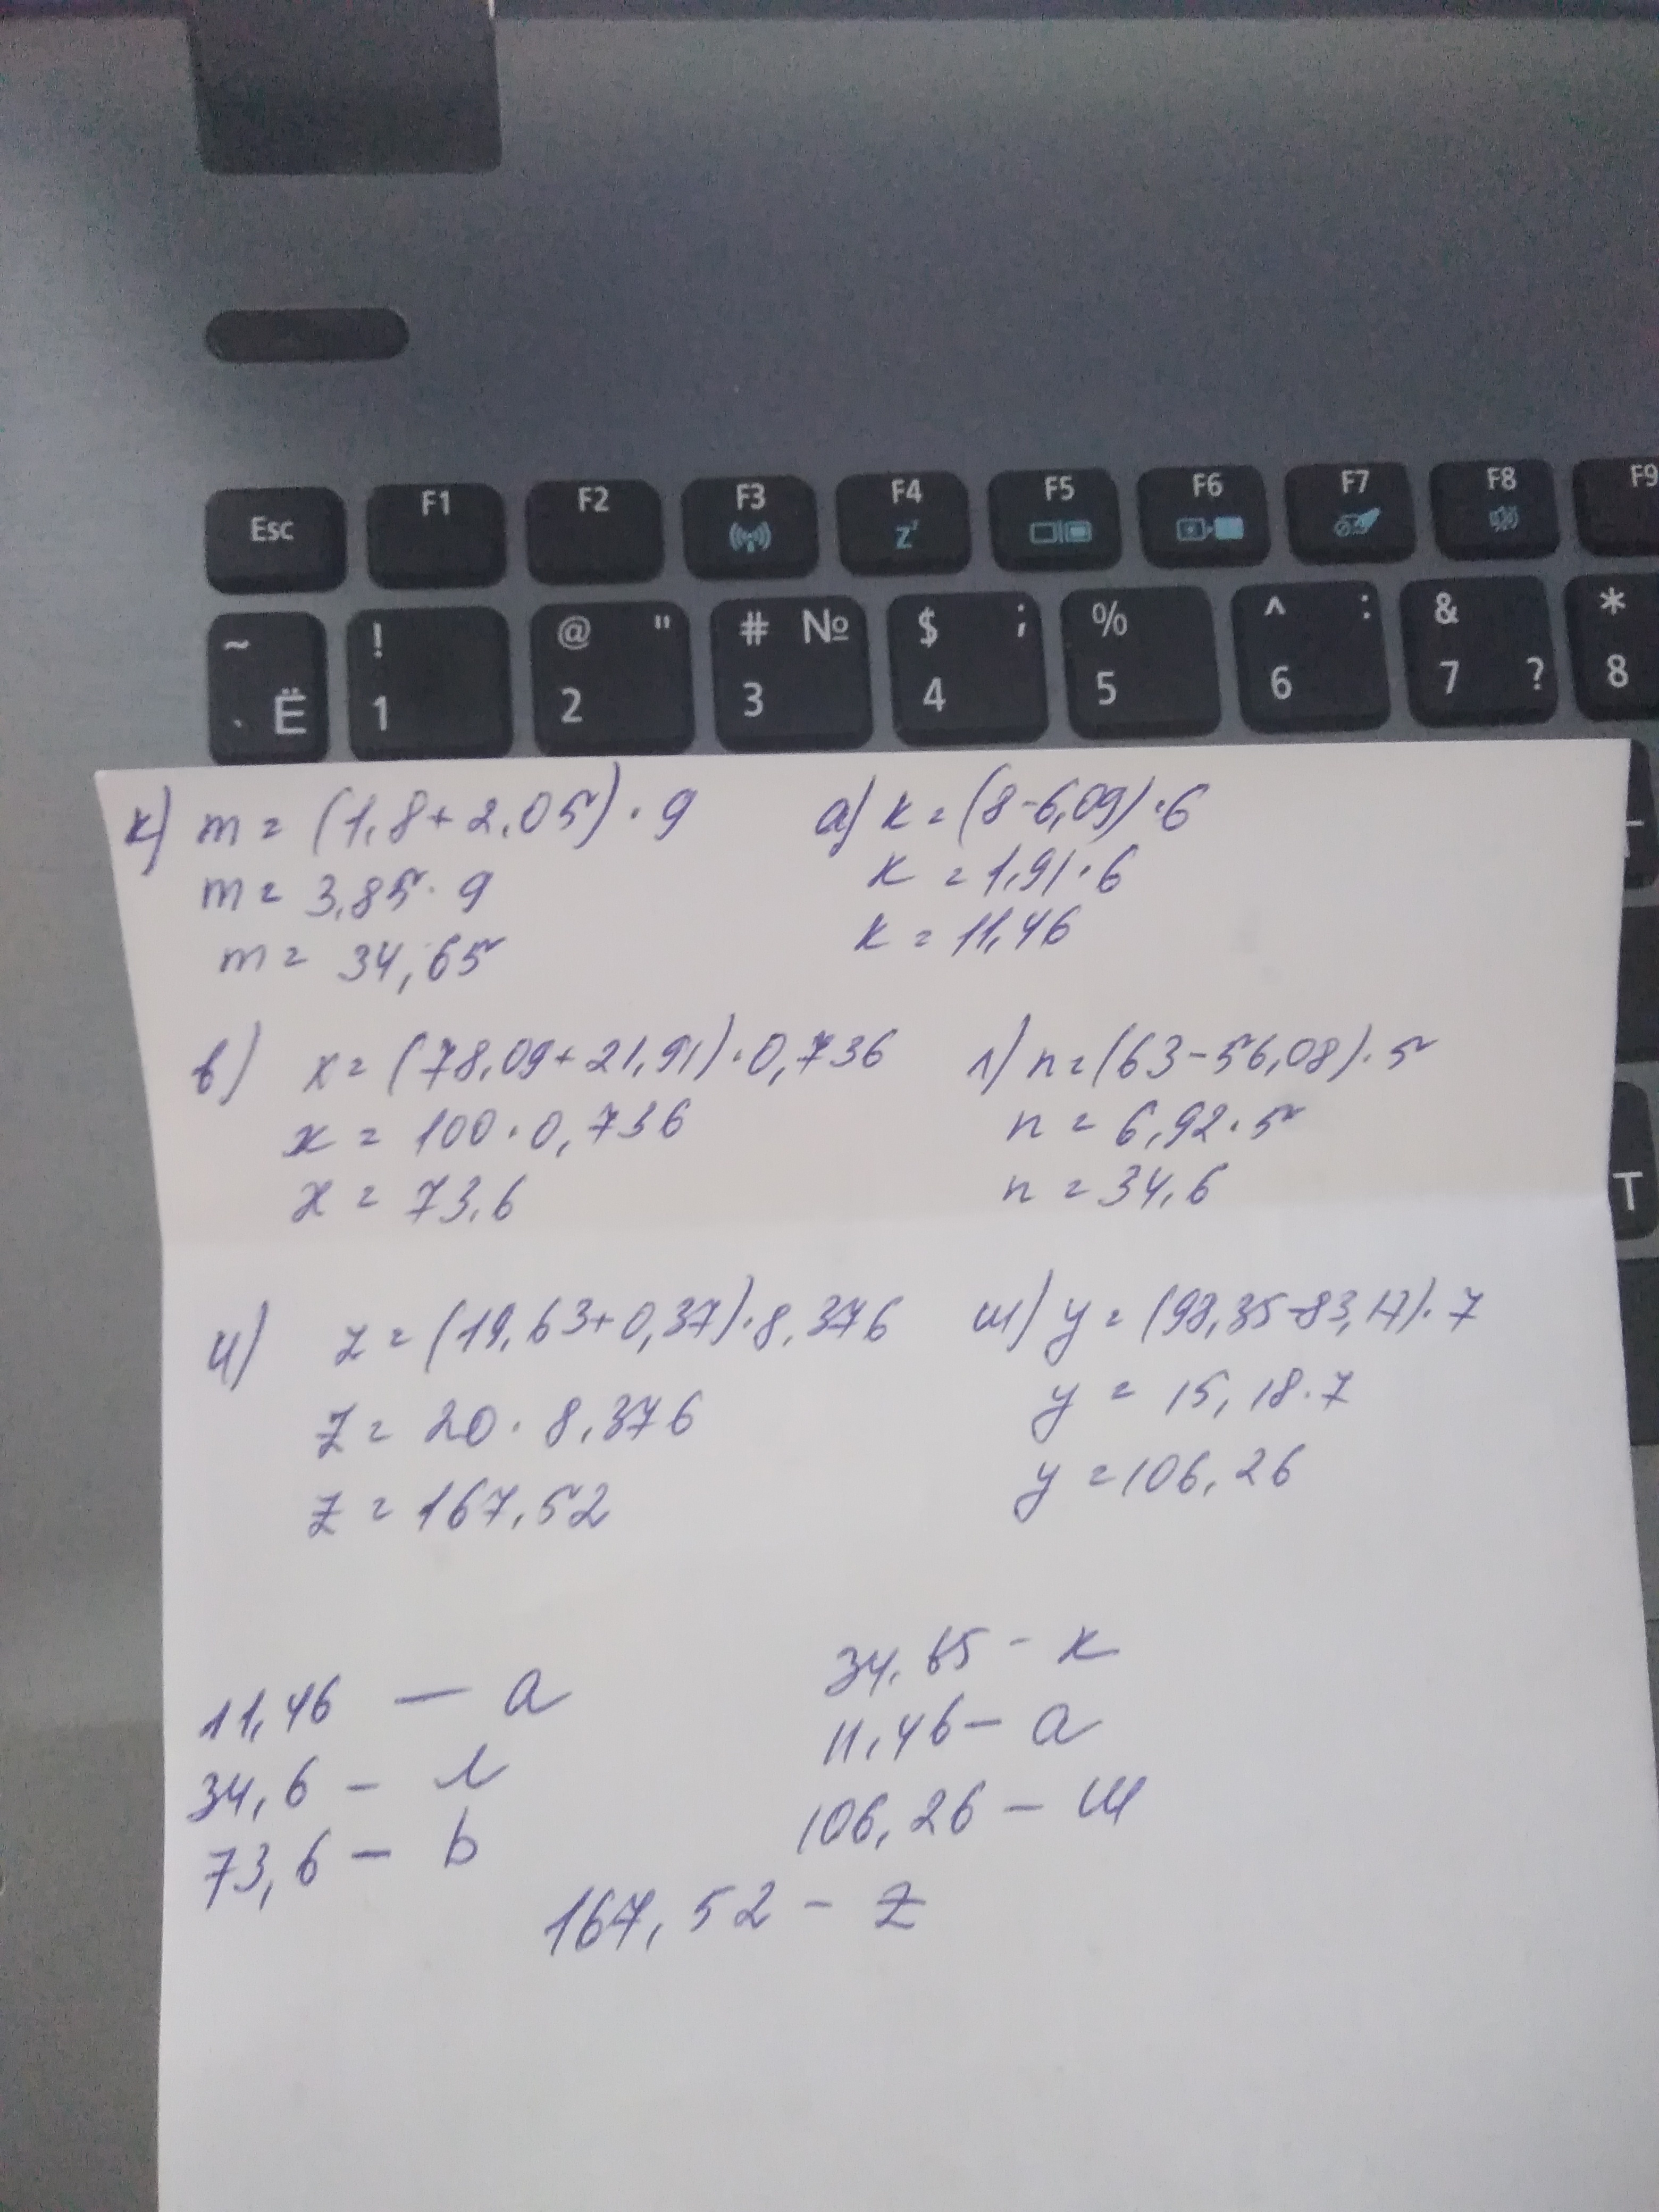 Esc F1 F2 F3 F4 Z F5 F6 F7 F8 F9
~ ! @ " # № $ ; % ^ : & *
` Ё 1 2 3 4 5 6 7 ? 8
T
к) m = (1,8+2,05)·9
m = 3,85·9
m = 34,65
а) к = (8-6,09)·6
к = 1,91·6
к = 11,46
в) x = (78,09+21,91)·0,736
x = 100·0,736
x = 73,6
л) n = (63-56,08)·5
n = 6,92·5
n = 34,6
и) z = (19,63+0,37)·8,376
z = 20·8,376
z = 167,52
ш) y = (98,35-83,17)·7
y = 15,18·7
y = 106,26
11,46 — а
34,6 — л
73,6 — b
34,65 - к
11,46 — а
106,26 — ш
167,52 - z